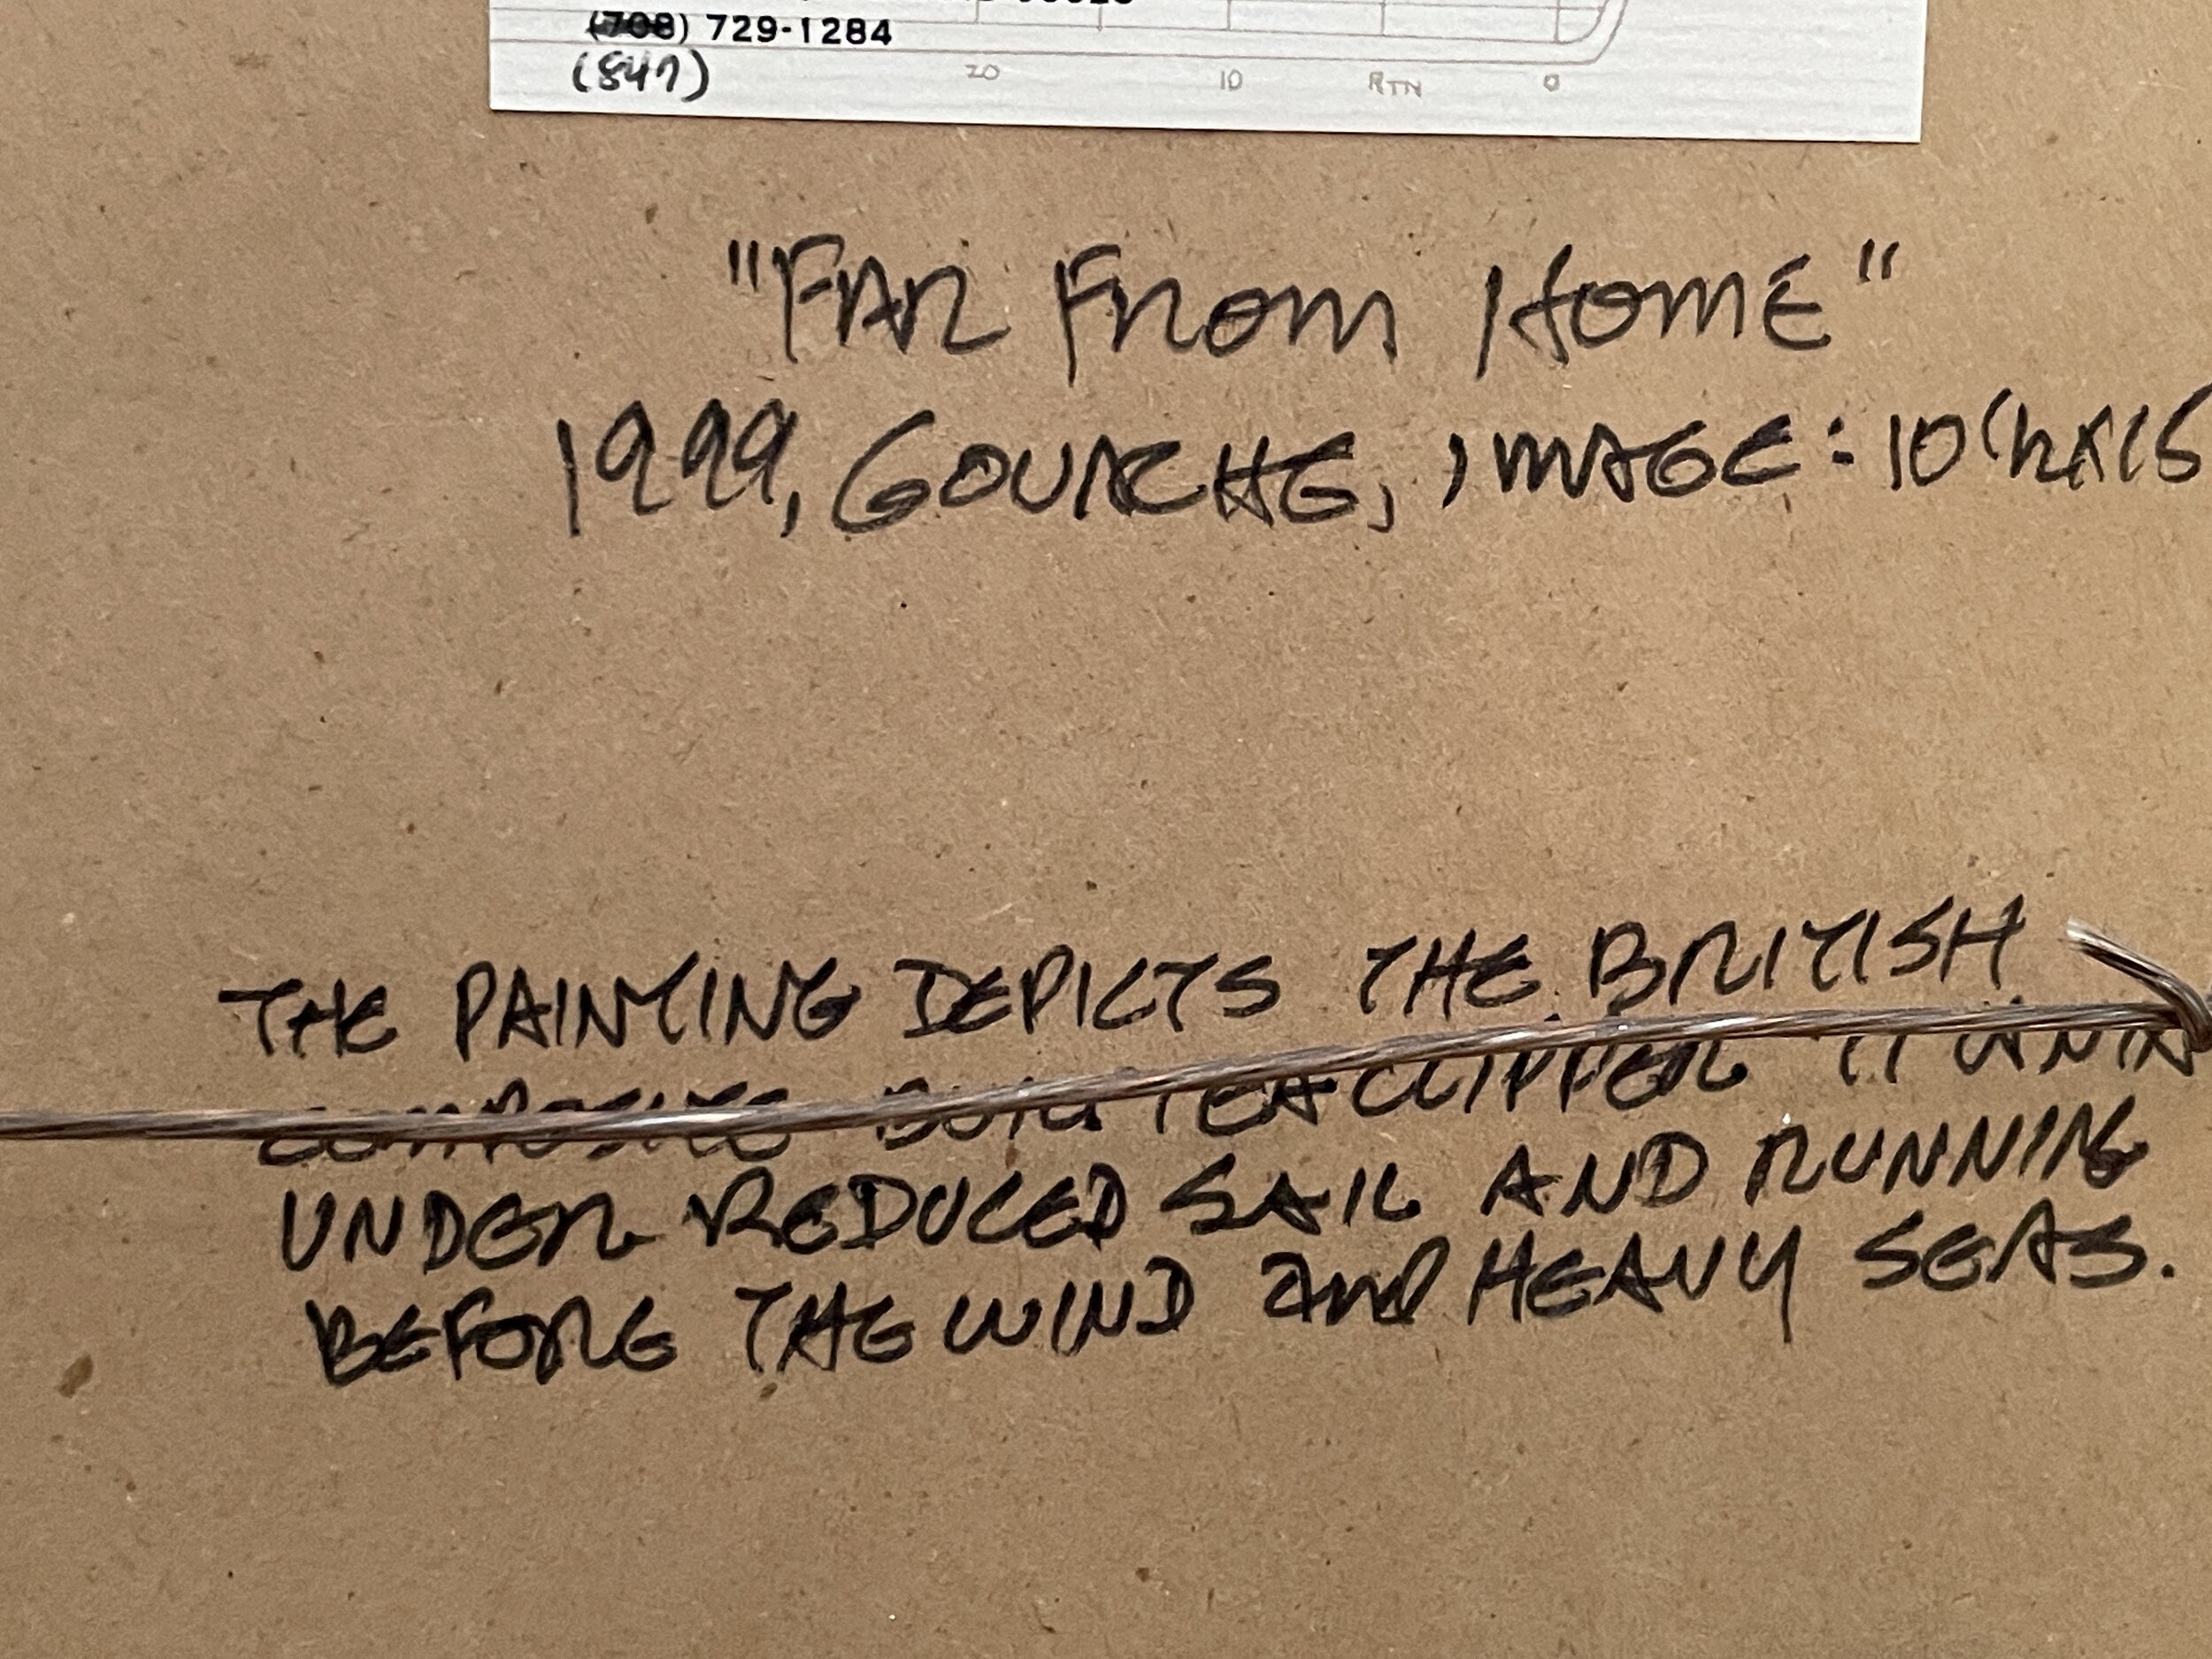 (708) 729-1284
(847)
20 10 RTN 0
"FAR FROM HOME"
1999, GOUACHE, IMAGE: 10
THE PAINTING DEPICTS THE BRITISH
COMPOSITE BUILT TEA CLIPPER
UNDER REDUCED SAIL AND RUNNING
BEFORE THE WIND and HEAVY SEAS.